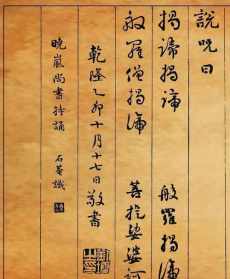 說咒曰
揭諦揭諦　般羅揭諦
般羅僧揭諦　菩提娑婆訶
乾隆乙卯十月十七日敬書
晚嵐尚書持誦
石菴識